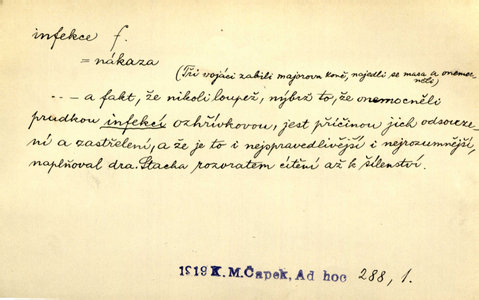 infekce f.
= nákaza
(Tři vojáci zabili majorova koně, najedli se masa a onemoc-
něli)
-- a fakt, že nikoli loupež, nýbrž to, že onemocněli
prudkou infekcí ozhřívkovou, jest příčinou jich odsouze-
ní a zastřelení, a že je to i nejspravedlivější i nejrozumnější,
naplňoval dra. Stacha rozvratem cítění až k šílenství.
1919 K. M. Čapek, Ad hoc 288, 1.